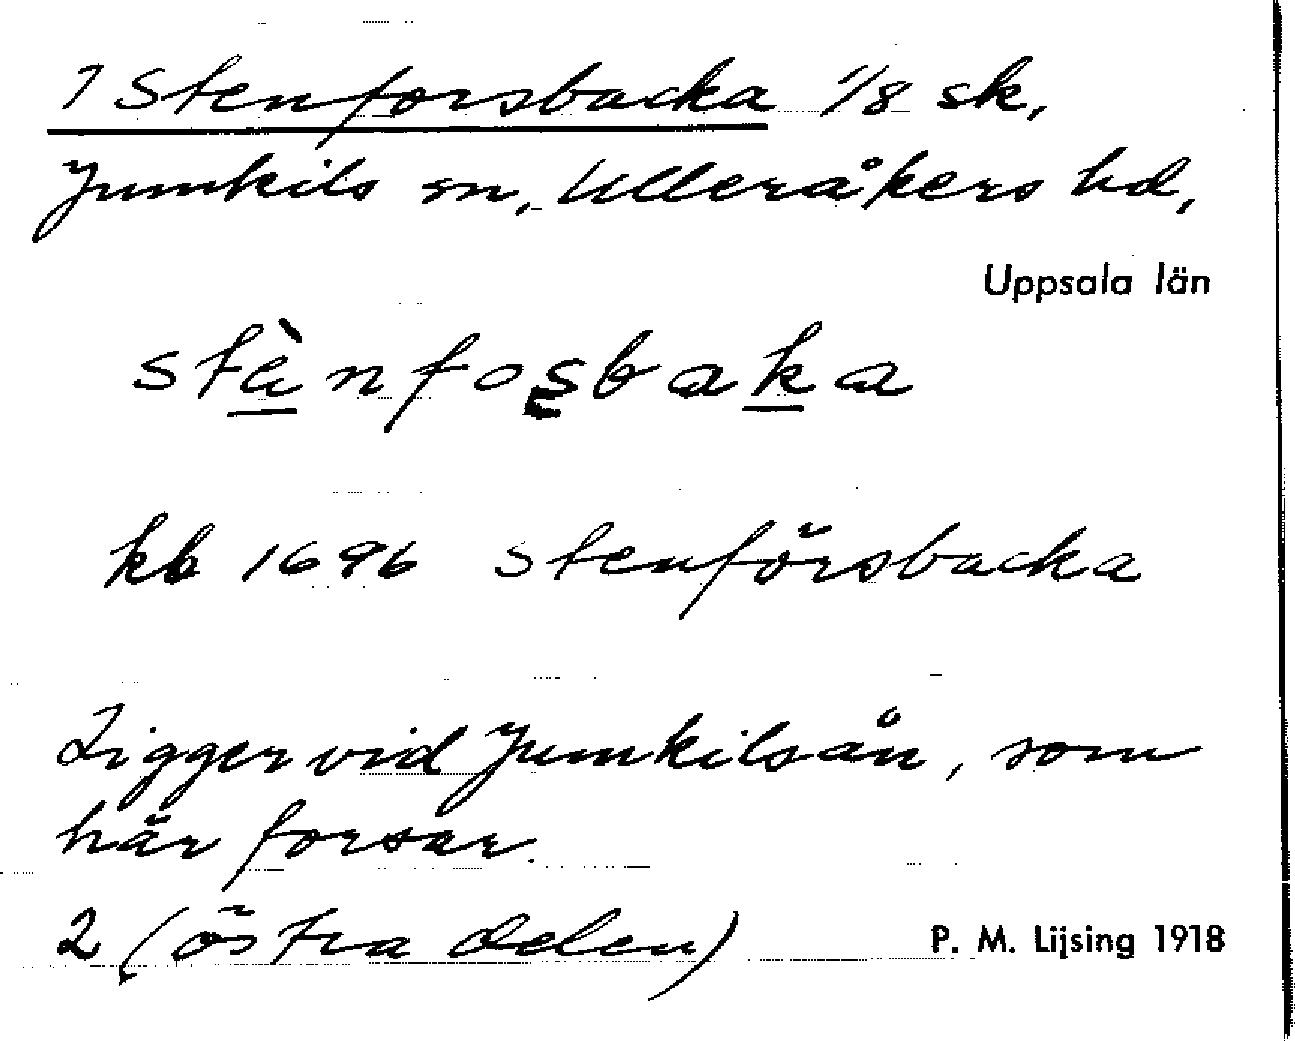 1 Stenforsbacka 1/8 sk,
Jumkils sn, Ulleråkers hd,
Uppsala län
stà̱nfoşbaḵa
kb 1696 Stenförsbacka
Ligger vid Jumkilsån, som
här forsar.
2 (östra delen)
P. M. Lijsing 1918